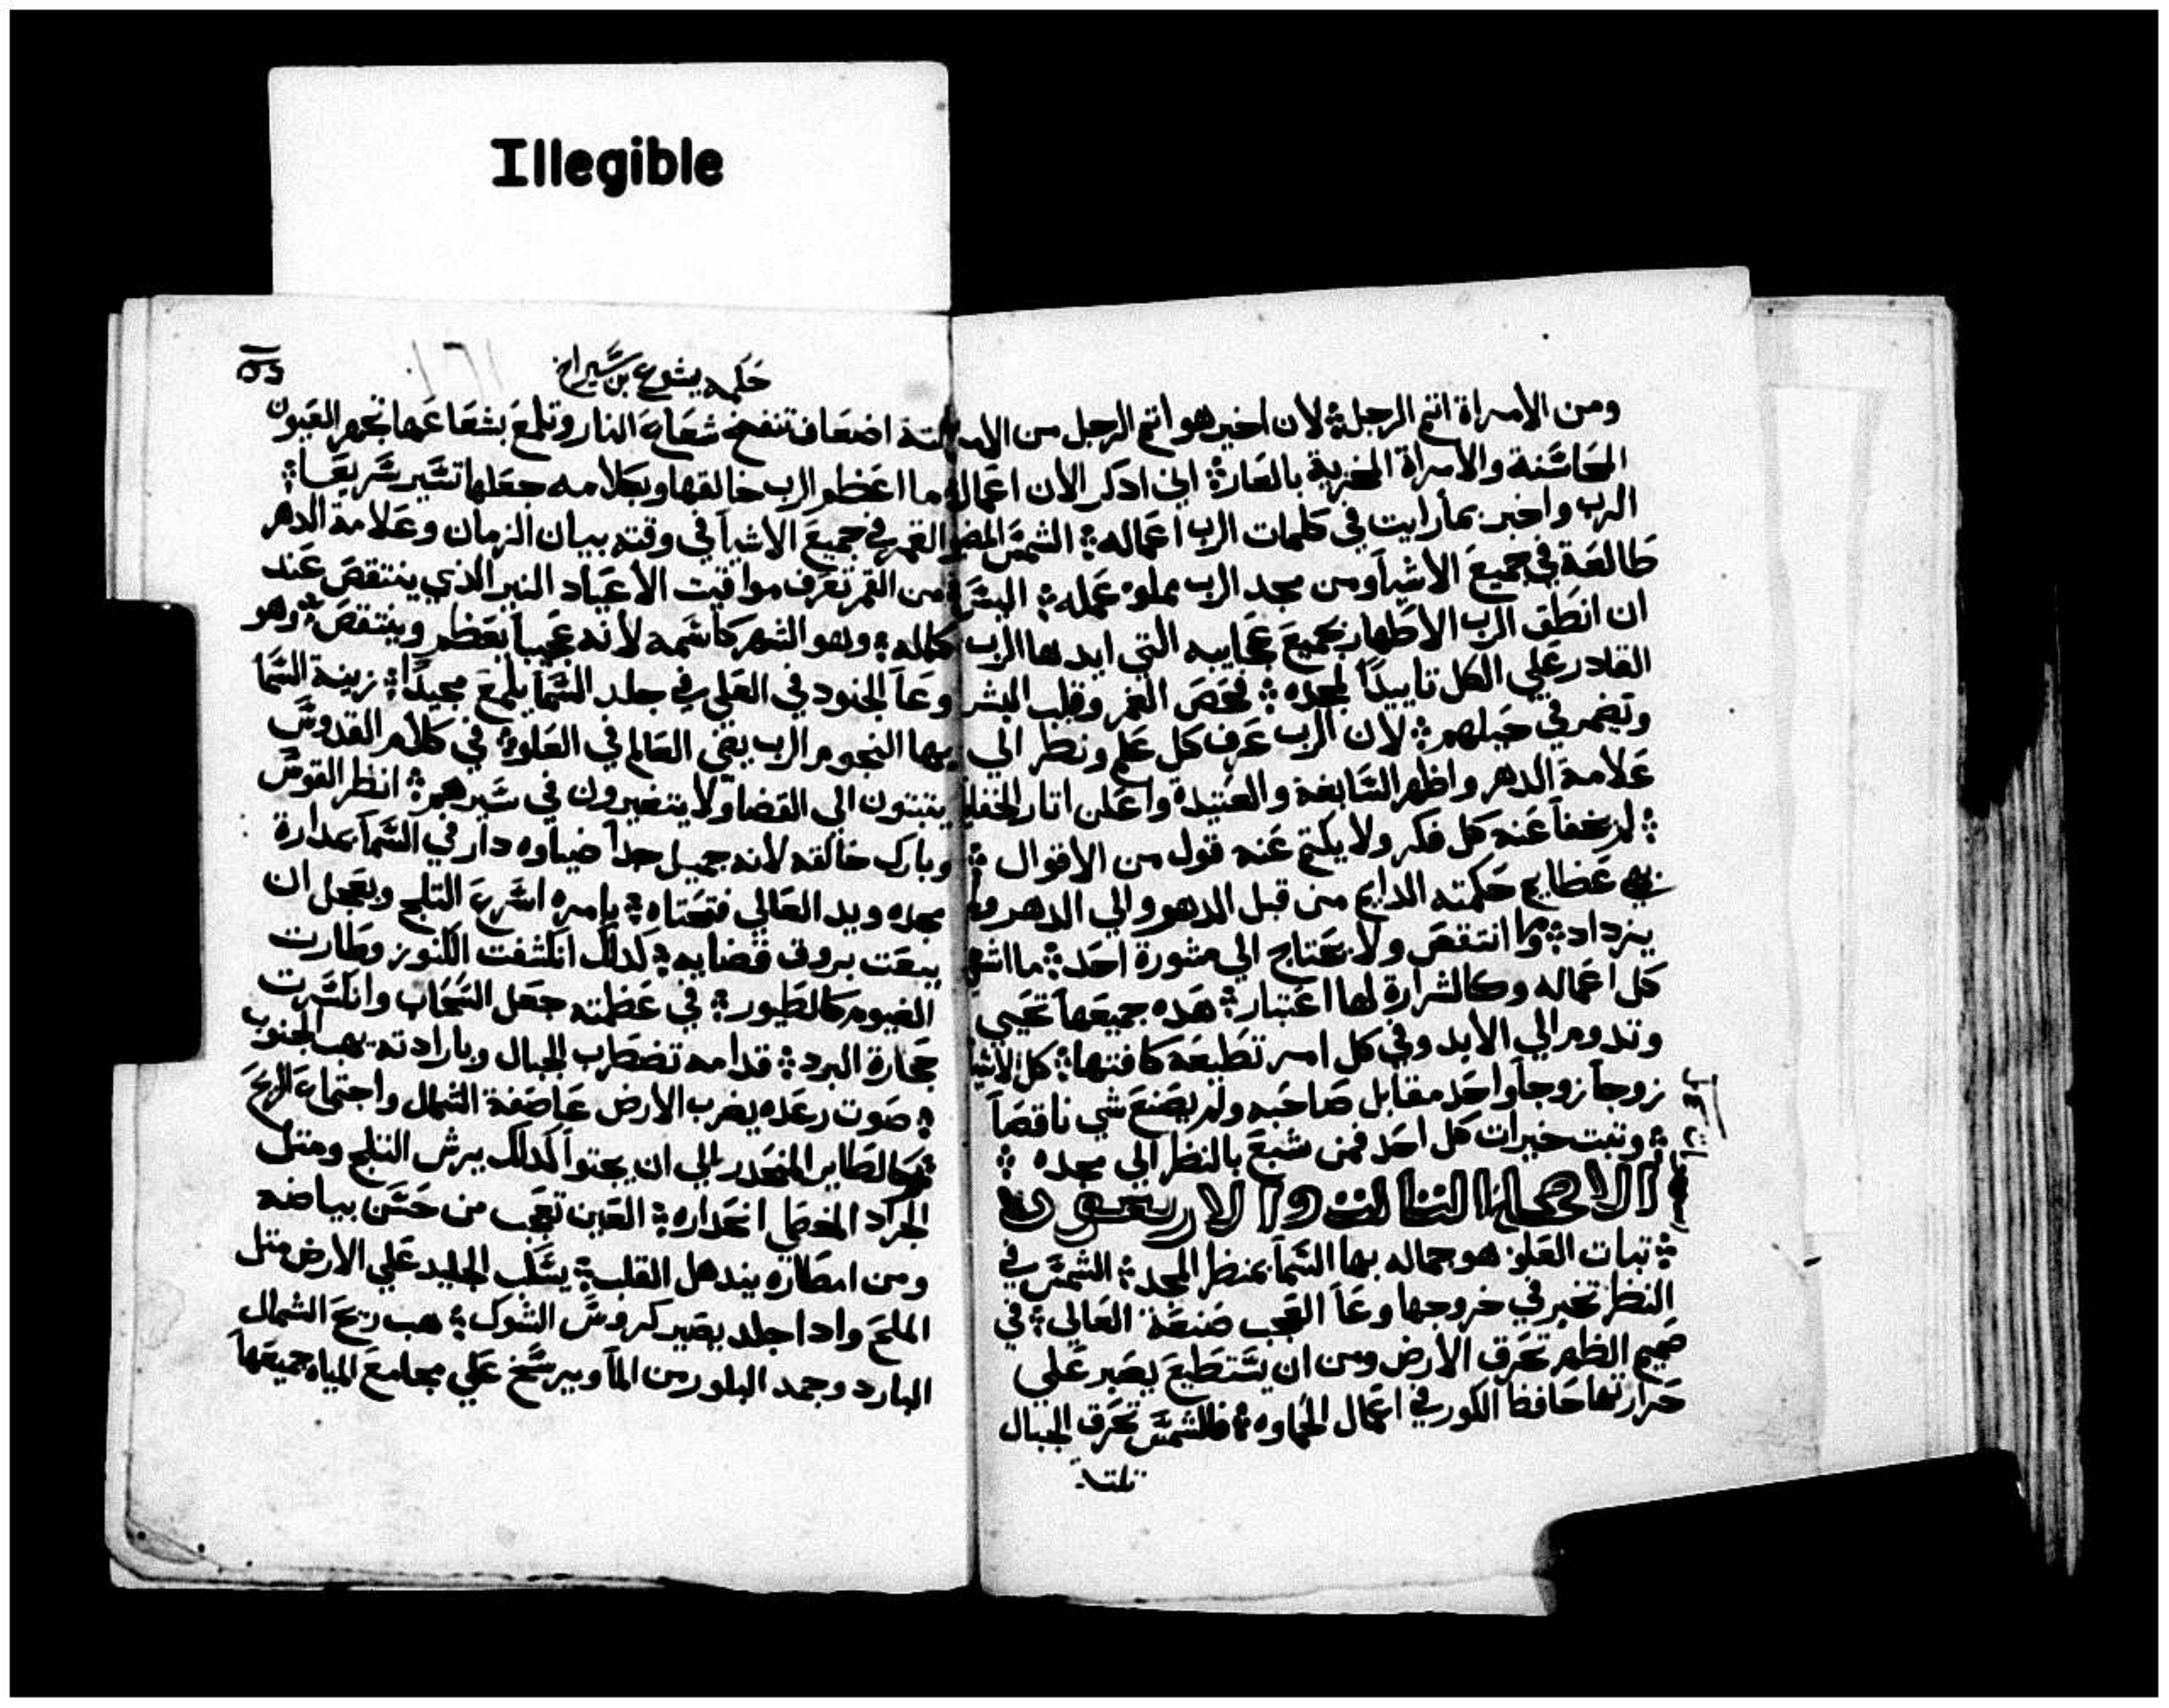 Illegible
ومن الامراة اتم الرجل لان اخير هو اتم الرجل من الامراة
المحاسنة والامراة المخزية بالعار اني ادكر الان اعمال
الرب واخبر بمارايت في كلمات الرب اعماله الشمس المضو
طالعة في جميع الاشيا ومن مجد الرب مملو عمله اليس
ان انطق الرب الاطهار بجميع عجايبه التي ايدها الرب
القادر علي الكل تاييدا لمجده فحص الغمر وقلب البشر
وتضمر في حيلهم لان الرب عرف كل علم ونظر الي
علامة الدهر واظهر السابغة والعتيدة واعلن اتار الخفايا
لم يخفا عنه كل فكر ولا يكتم عنه قول من الاقوال
عظايم حكمته الدايم من قبل الدهر والي الدهر ولم
يزداد وما انتقص ولا يحتاج الي مشورة احد ما اشهي
كل اعماله وكالشرارة لها اعتبار هده جميعها تحيي
وتدوم الي الابد وفي كل امر تطيعه كافتها كل الاشيا
زوجا زوجا واحد مقابل صاحبه ولم يصنع شي ناقصا
وتبت خيرات كل احد فمن شبع بالنظر الي مجده
الاصحاح التالت والاربعون
تبات العلو هو جماله بها السما بمنظر المجد الشمس في
النظر تخبر في خروجها وعا العجب صنعة العالي في
صميم الظهر تحرق الارض ومن ان يستطيع يصبر علي
حرارتها حافظا الكور في اعمال الحماوه فالشمس تحرق الجبال
تلتة
حكمه يشوع بن سيراخ
١٦١
تلتة اضعاف تنفخ شعاع النار وتلمع بشعاعها تجهر العيون
ما اعظم الرب خالقها وبكلامه جعلها تسير سريعا
القمر في جميع الاشيا في وقته بيان الزمان وعلامة الدهر
من القمر تعرف مواقيت الاعياد النير الذي ينتقص عند
كماله وهو الشهر كاسمه لانه عجيبا بعظم وينتقص وهو
وعا الجنود في العلي في جلد السما يلمع مجيدا زينة السما
بها النجوم الرب يضي العالم في العلو في كلام القدوس
يتبتون الي القضا ولا يتغيرون في سيرهم انظر القوس
وبارك خالقه لانه جميل جدا ضياوه دار في السما بمدارة
مجده ويد العالي فتحتاه بامره اسرع التلج وبعجل ان
يبعت بروق قضايه لدلك انكشفت الكنوز وطارت
الغيوم كالطيور في عظمته جعل السحاب وانكسرت
حجارة البرد قدامه تضطرب الجبال وبارادته يهب الجنوب
صوت رعده يضرب الارض عاصفة الشمال واجتماع الريح
وكالطاير المنحدر الي ان يجتوا كدلك يرش التلج ومتل
الجراد انحداره العين تعجب من حسن بياضه
ومن امطاره يندهل القلب يسلب الجليد علي الارض متل
الملح وادا جلد يصير كروس الشوك هب ريح الشمال
البارد وجمد البلور من الما ويرسخ علي مجامع المياه جميعها